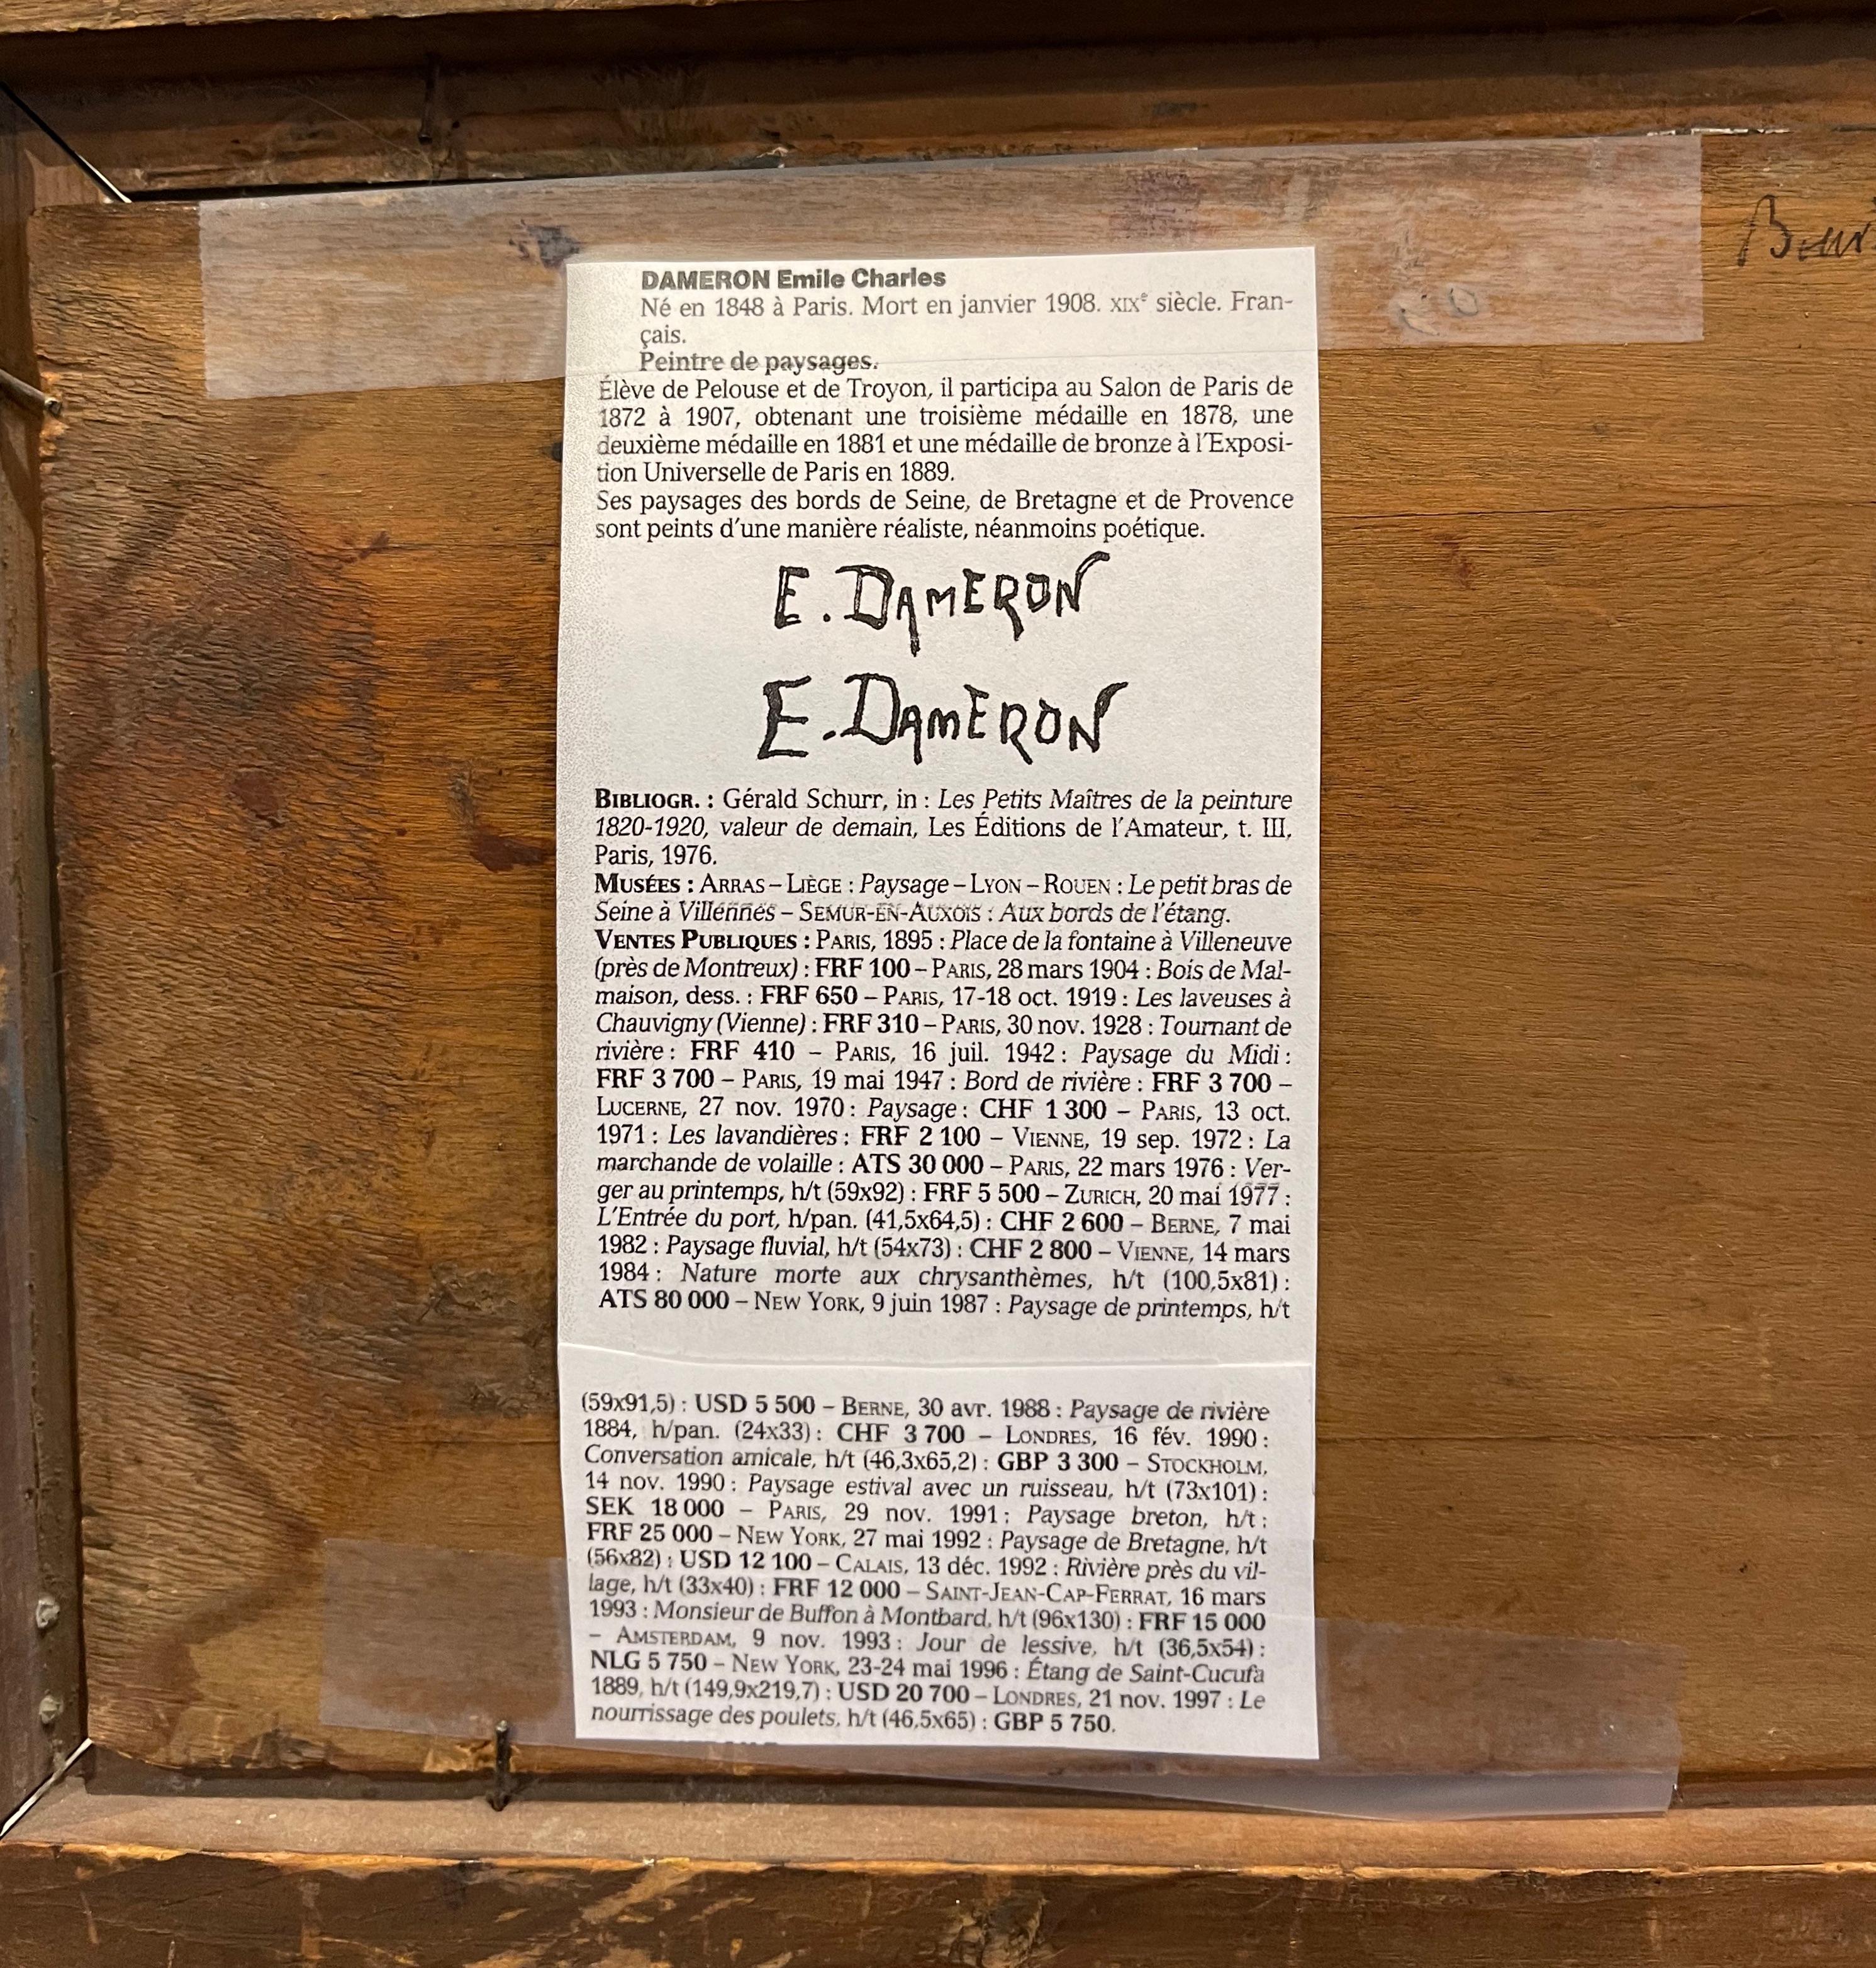 DAMERON Emile Charles
Né en 1848 à Paris. Mort en janvier 1908. XIXe siècle. Fran-
çais.
Peintre de paysages.
Élève de Pelouse et de Troyon, il participa au Salon de Paris de
1872 à 1907, obtenant une troisième médaille en 1878, une
deuxième médaille en 1881 et une médaille de bronze à l'Exposi-
tion Universelle de Paris en 1889.
Ses paysages des bords de Seine, de Bretagne et de Provence
sont peints d'une manière réaliste, néanmoins poétique.
E. DAMERON
E. DAMERON
BIBLIOGR. : Gérald Schurr, in : Les Petits Maîtres de la peinture
1820-1920, valeur de demain, Les Éditions de l'Amateur, t. III,
Paris, 1976.
MUSÉES : ARRAS – LIÈGE : Paysage – LYON – ROUEN : Le petit bras de
Seine à Villennes – SEMUR-EN-AUXOIS : Aux bords de l'étang.
VENTES PUBLIQUES : PARIS, 1895 : Place de la fontaine à Villeneuve
(près de Montreux) : FRF 100 – PARIS, 28 mars 1904 : Bois de Mal-
maison, dess. : FRF 650 – PARIS, 17-18 oct. 1919 : Les laveuses à
Chauvigny (Vienne) : FRF 310 – PARIS, 30 nov. 1928 : Tournant de
rivière : FRF 410 – PARIS, 16 juil. 1942 : Paysage du Midi :
FRF 3 700 – PARIS, 19 mai 1947 : Bord de rivière : FRF 3 700 –
LUCERNE, 27 nov. 1970 : Paysage : CHF 1 300 – PARIS, 13 oct.
1971 : Les lavandières : FRF 2 100 – VIENNE, 19 sep. 1972 : La
marchande de volaille : ATS 30 000 – PARIS, 22 mars 1976 : Ver-
ger au printemps, h/t (59x92) : FRF 5 500 – ZURICH, 20 mai 1977 :
L'Entrée du port, h/pan. (41,5x64,5) : CHF 2 600 – BERNE, 7 mai
1982 : Paysage fluvial, h/t (54x73) : CHF 2 800 – VIENNE, 14 mars
1984 : Nature morte aux chrysanthèmes, h/t (100,5x81) :
ATS 80 000 – NEW YORK, 9 juin 1987 : Paysage de printemps, h/t
(59x91,5) : USD 5 500 – BERNE, 30 avr. 1988 : Paysage de rivière
1884, h/pan. (24x33) : CHF 3 700 – LONDRES, 16 fév. 1990 :
Conversation amicale, h/t (46,3x65,2) : GBP 3 300 – STOCKHOLM,
14 nov. 1990 : Paysage estival avec un ruisseau, h/t (73x101) :
SEK 18 000 – PARIS, 29 nov. 1991 : Paysage breton, h/t :
FRF 25 000 – NEW YORK, 27 mai 1992 : Paysage de Bretagne, h/t
(56x82) : USD 12 100 – CALAIS, 13 déc. 1992 : Rivière près du vil-
lage, h/t (33x40) : FRF 12 000 – SAINT-JEAN-CAP-FERRAT, 16 mars
1993 : Monsieur de Buffon à Montbard, h/t (96x130) : FRF 15 000
– AMSTERDAM, 9 nov. 1993 : Jour de lessive, h/t (36,5x54) :
NLG 5 750 – NEW YORK, 23-24 mai 1996 : Étang de Saint-Cucufa
1889, h/t (149,9x219,7) : USD 20 700 – LONDRES, 21 nov. 1997 : Le
nourrissage des poulets, h/t (46,5x65) : GBP 5 750.